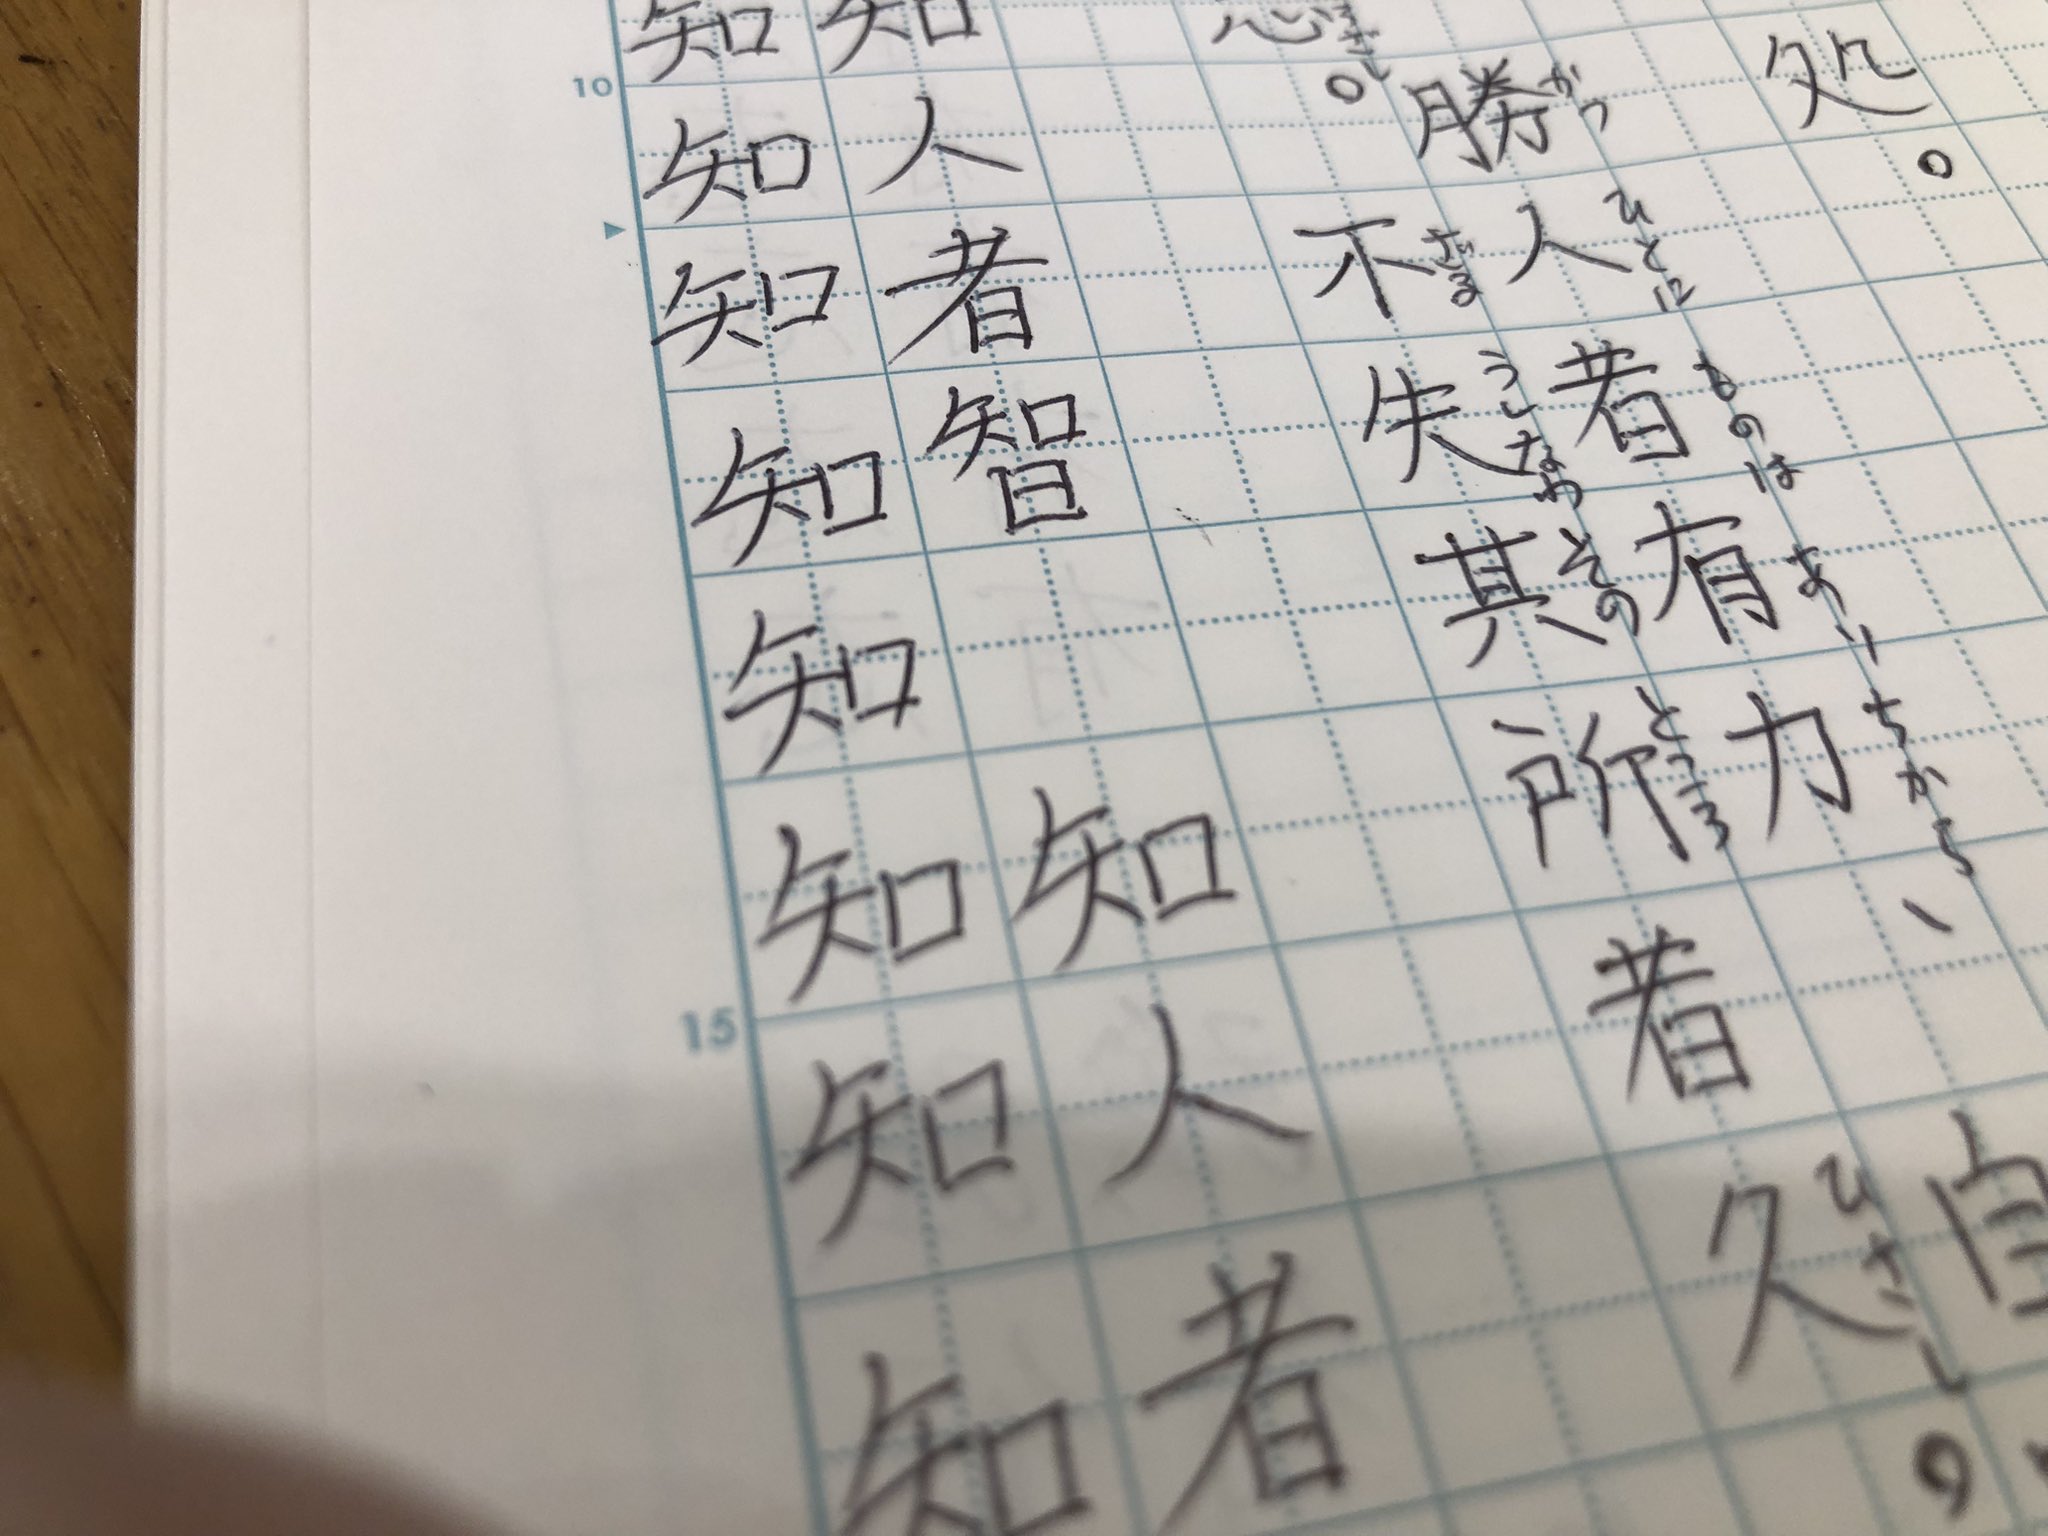 処。
かつ ひとに ものは あり ちから
勝人者有力、自
ざる うしなわ その ところ ひさし
。不失其所者久。
知人者智 知人者
知知知知知知知知
10
15